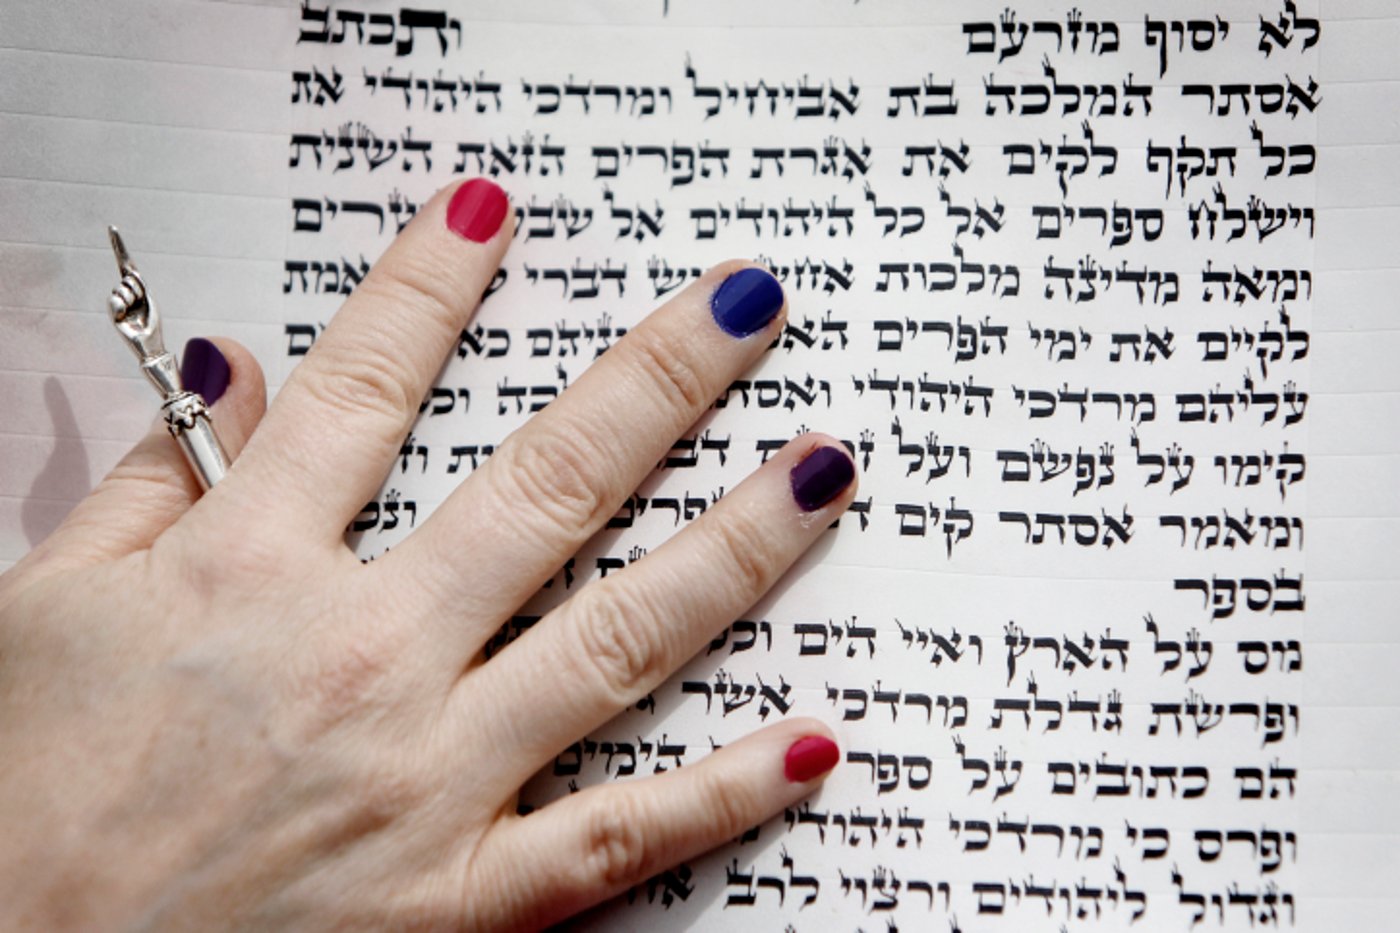 לא יסוף מזרעם ותכתב
אסתר המלכה בת אביחיל ומרדכי היהודי את
כל תקף לקים את אגרת הפרים הזאת השנית
וישלח ספרים אל כל היהודים אל
ומאה מדינה מלכות דברי
לקיים את ימי הפרים
עליהם מרדכי היהודי
קימו על נפשם ועל
ומאמר אסתר קים
בספר
מס על הארץ ואיי הים
ופרשת גדלת מרדכי אשר
הם כתובים על ספר הימים
ופרס כי מרדכי היהודי
וגדול ליהודים ורצוי לרב